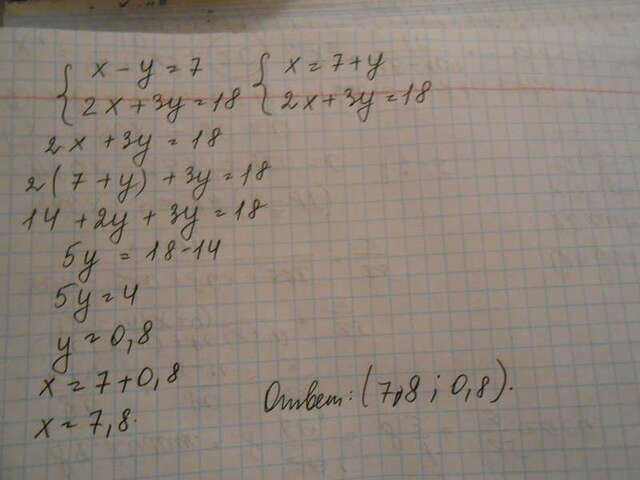 { x - y = 7 { x = 7 + y
2x + 3y = 18 2x + 3y = 18
2x + 3y = 18
2(7 + y) + 3y = 18
14 + 2y + 3y = 18
5y = 18 - 14
5y = 4
y = 0,8
x = 7 + 0,8
x = 7,8. Ответ: (7,8 ; 0,8).